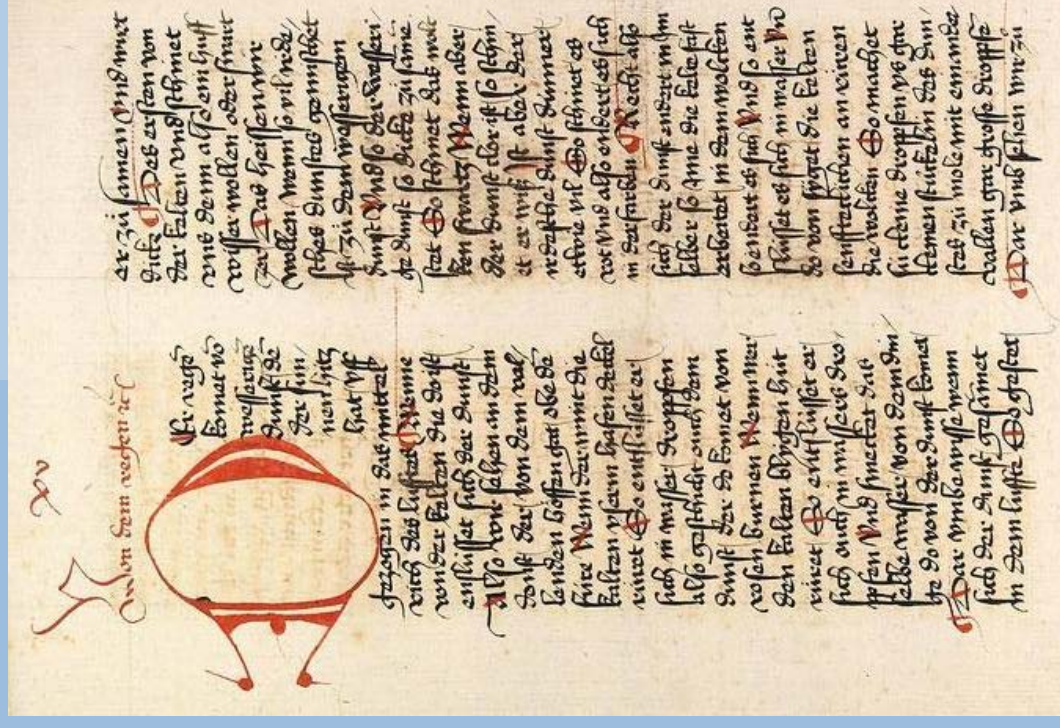 xv
Von dem regen xv
Er rege
komet vo
wesserige
dunst de
der sun
nen hitz
hat vff
gezogen in das mittel
rich des lufftes Wenne
von der kalten die dorst
enslisset sich der dunst
Also wir sehen an dem
donst der von dem wal
lenden hoffen gat obe de
füre Wenn der mit die
kalten ysenn hafen deckel
rüret So entslusset er
sich in wasser troppfen
also geschicht ouch dem
dunst der do komet von
rosen burnen Wenn wer
den kalten blyigen hüt
rüret So entslusset er
sich ouch in wassers dro
pfen Vnd smecket das
selbe wasser von dem din
ge do von der dunst komet
Dar vmbe wisse wenn
sich der dunst gesamet
in dem luffte So gestet
er zü samen Vnd wurt
dicke Des ersten von
der kalten vnd schinet
vns denn als ein huff
wisser wollen oder swar
zer Das heissen wir
wollen wenn so vil irde
sches dunstes gemischet
ist zü dem wasserigen
dunst Vnd so der wasseri
ge dunst so dicke zü same
stet So schinet das wol
ken swartz Wenn aber
der dunst clor ist so schin
et er wis Ist aber der
irdesche dunst dünner
etwie vil So schinet es
rot Vnd also endert es sich
in der farben Recht also
sich der dunst endert in jm
selber so jme die kelte
erbeitet in dem wolken
endert es sich Vnd so ent
slusset es sich in wasser Vn
do von die kalten
senftenclichen an
die wolken So machet
sü cleine droppfen vs gar
kleinen stücklin des dun
stes zü mole mit einander
wallen gar grosse droppfe
Dar vmb sehen wir zü